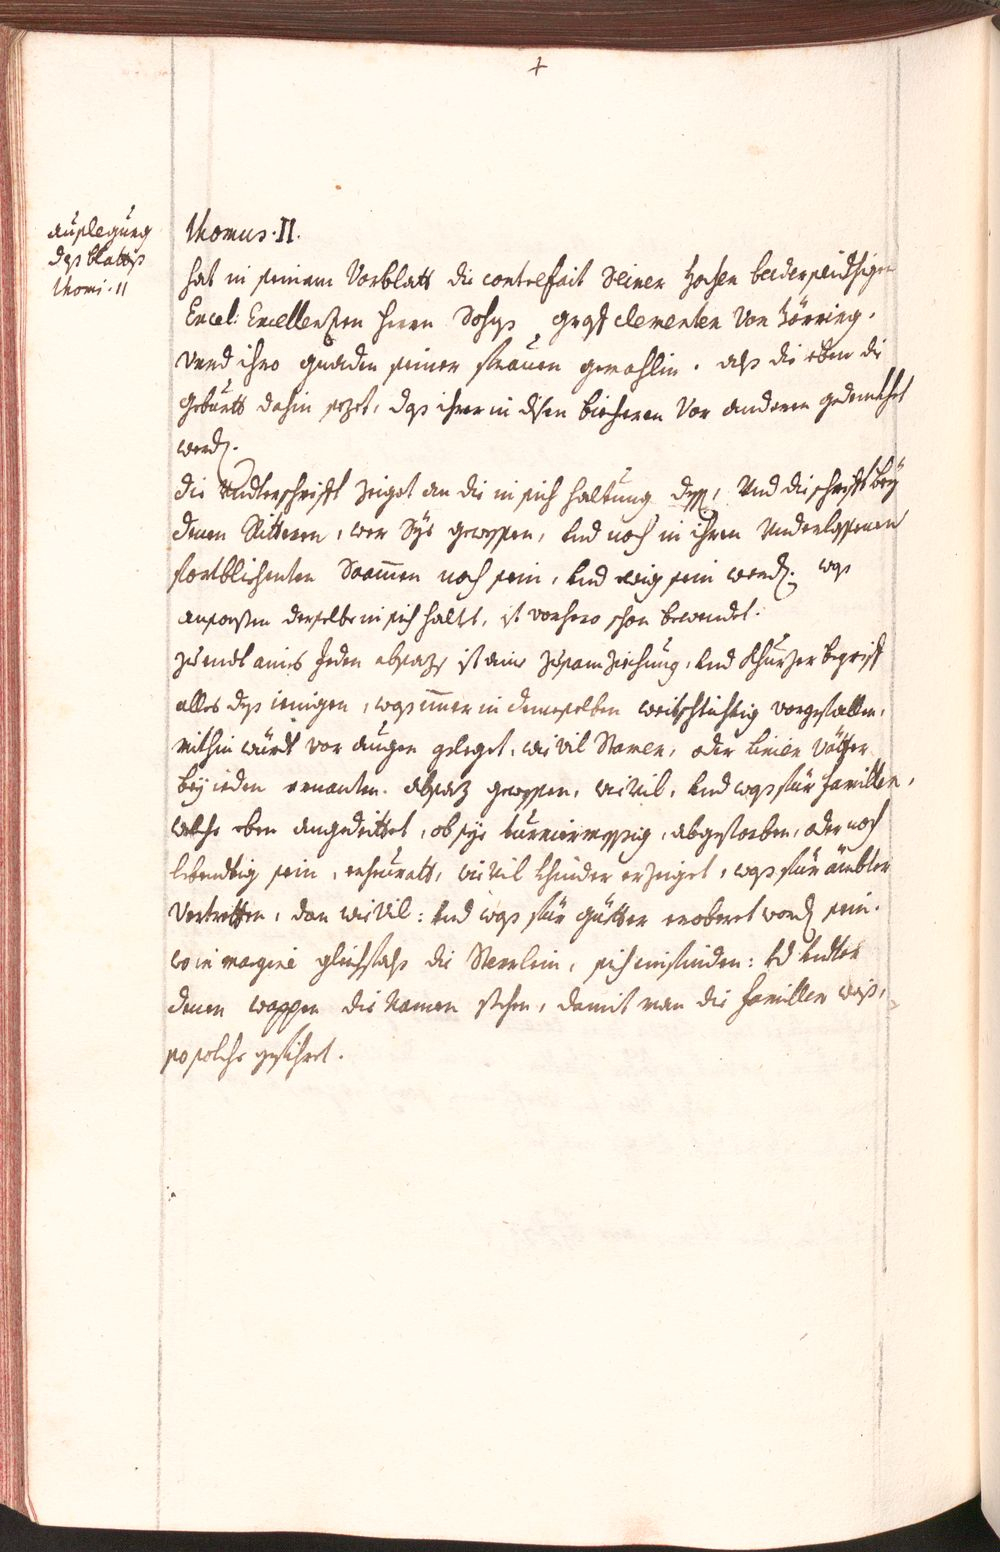 +
außlegung
deß blatts
thomi. II
thomus. II.
hat in seinem Vorblatt die contrefait Seiner Hochen beederseidthigen
Excel: Excellenzen Herrn Sohns graf Clementen Von Törring.
vnnd ihro gnaden seiner frauen gemahlin. alß die eben die
geburth dahin sezet, daß ihrer in disen biecheren Vor anderen gedenckht
werdt.
die Vndterschrifft zeiget an die in sich haltung dess, Vnd die schrifft bey
denen Ritteren, wer Sye gewessen, Vnd noch in ihren Vnderlassenen
fortblichenten Saamen noch sein, Vnd ewig sein werdt. was
ansonsten derselbe in sich haltet, ist vorhero schon bewendet.
zu endt aines Jeden absaz ist eine zusam ziehung, Vnd Khurzer begriff
alles deß ienigen, waß immer in demeselben weitschichtig vorgefallen,
mithin würdt vor augen geleget, wie vil Namen, oder linien Vätter
bey ieden ernanten absaz gewessen, wie vil, Vnd waß für familien,
welche eben angedeittet, ob sye turniermessig, abgestorben, oder noch
lebendtig sein, verheuratt, wie vil Khinder erzeiget, waß für ämbter
Vertretten, dan wie vil: Vnd waß für gütter eroberet wordt sein.
wo in margine gleichfahls die Sternlein, sich einfinden: Vnd Vndter
denen wappen die Namen stehen, damit man die familien waiß,
so solche geführet.